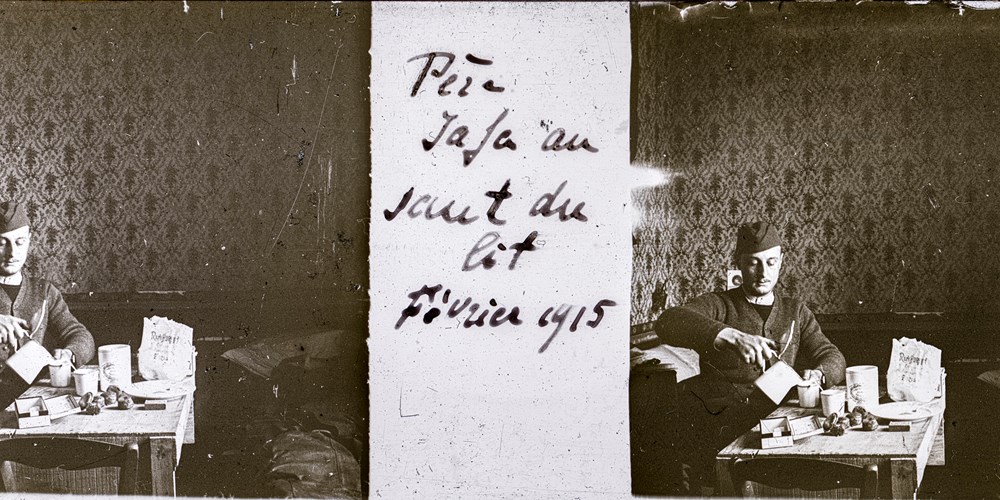 Père
Jafa au
saut du
lit
Février 1915